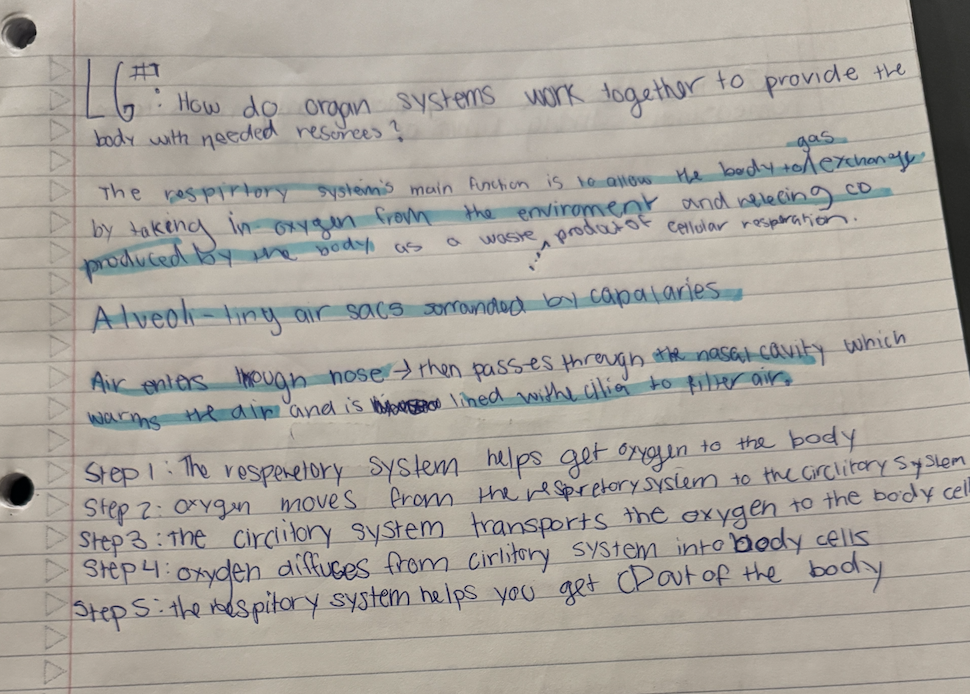 LG #1: How do organ systems work together to provide the
body with needed resorces?
gas
The respirtory system's main function is to allow the body to exchange
by taking in oxygen from the enviroment and relecing CO
produced by the body as a waste product of cellular resporation.
Alveoli-tiny air sacs sorranded by capalaries
Air enters though nose → then passes through the nasal cavity which
warms the air and is lined withe cilia to filter air.
Step 1: The resperetory system helps get oxygen to the body
Step 2: oxygen moves from the respretory system to the circlitory system
Step 3: the circlitory system transports the oxygen to the body cell
Step 4: oxyden diffuces from cirlitory system into body cells
Step 5: the respitory system helps you get CO out of the body